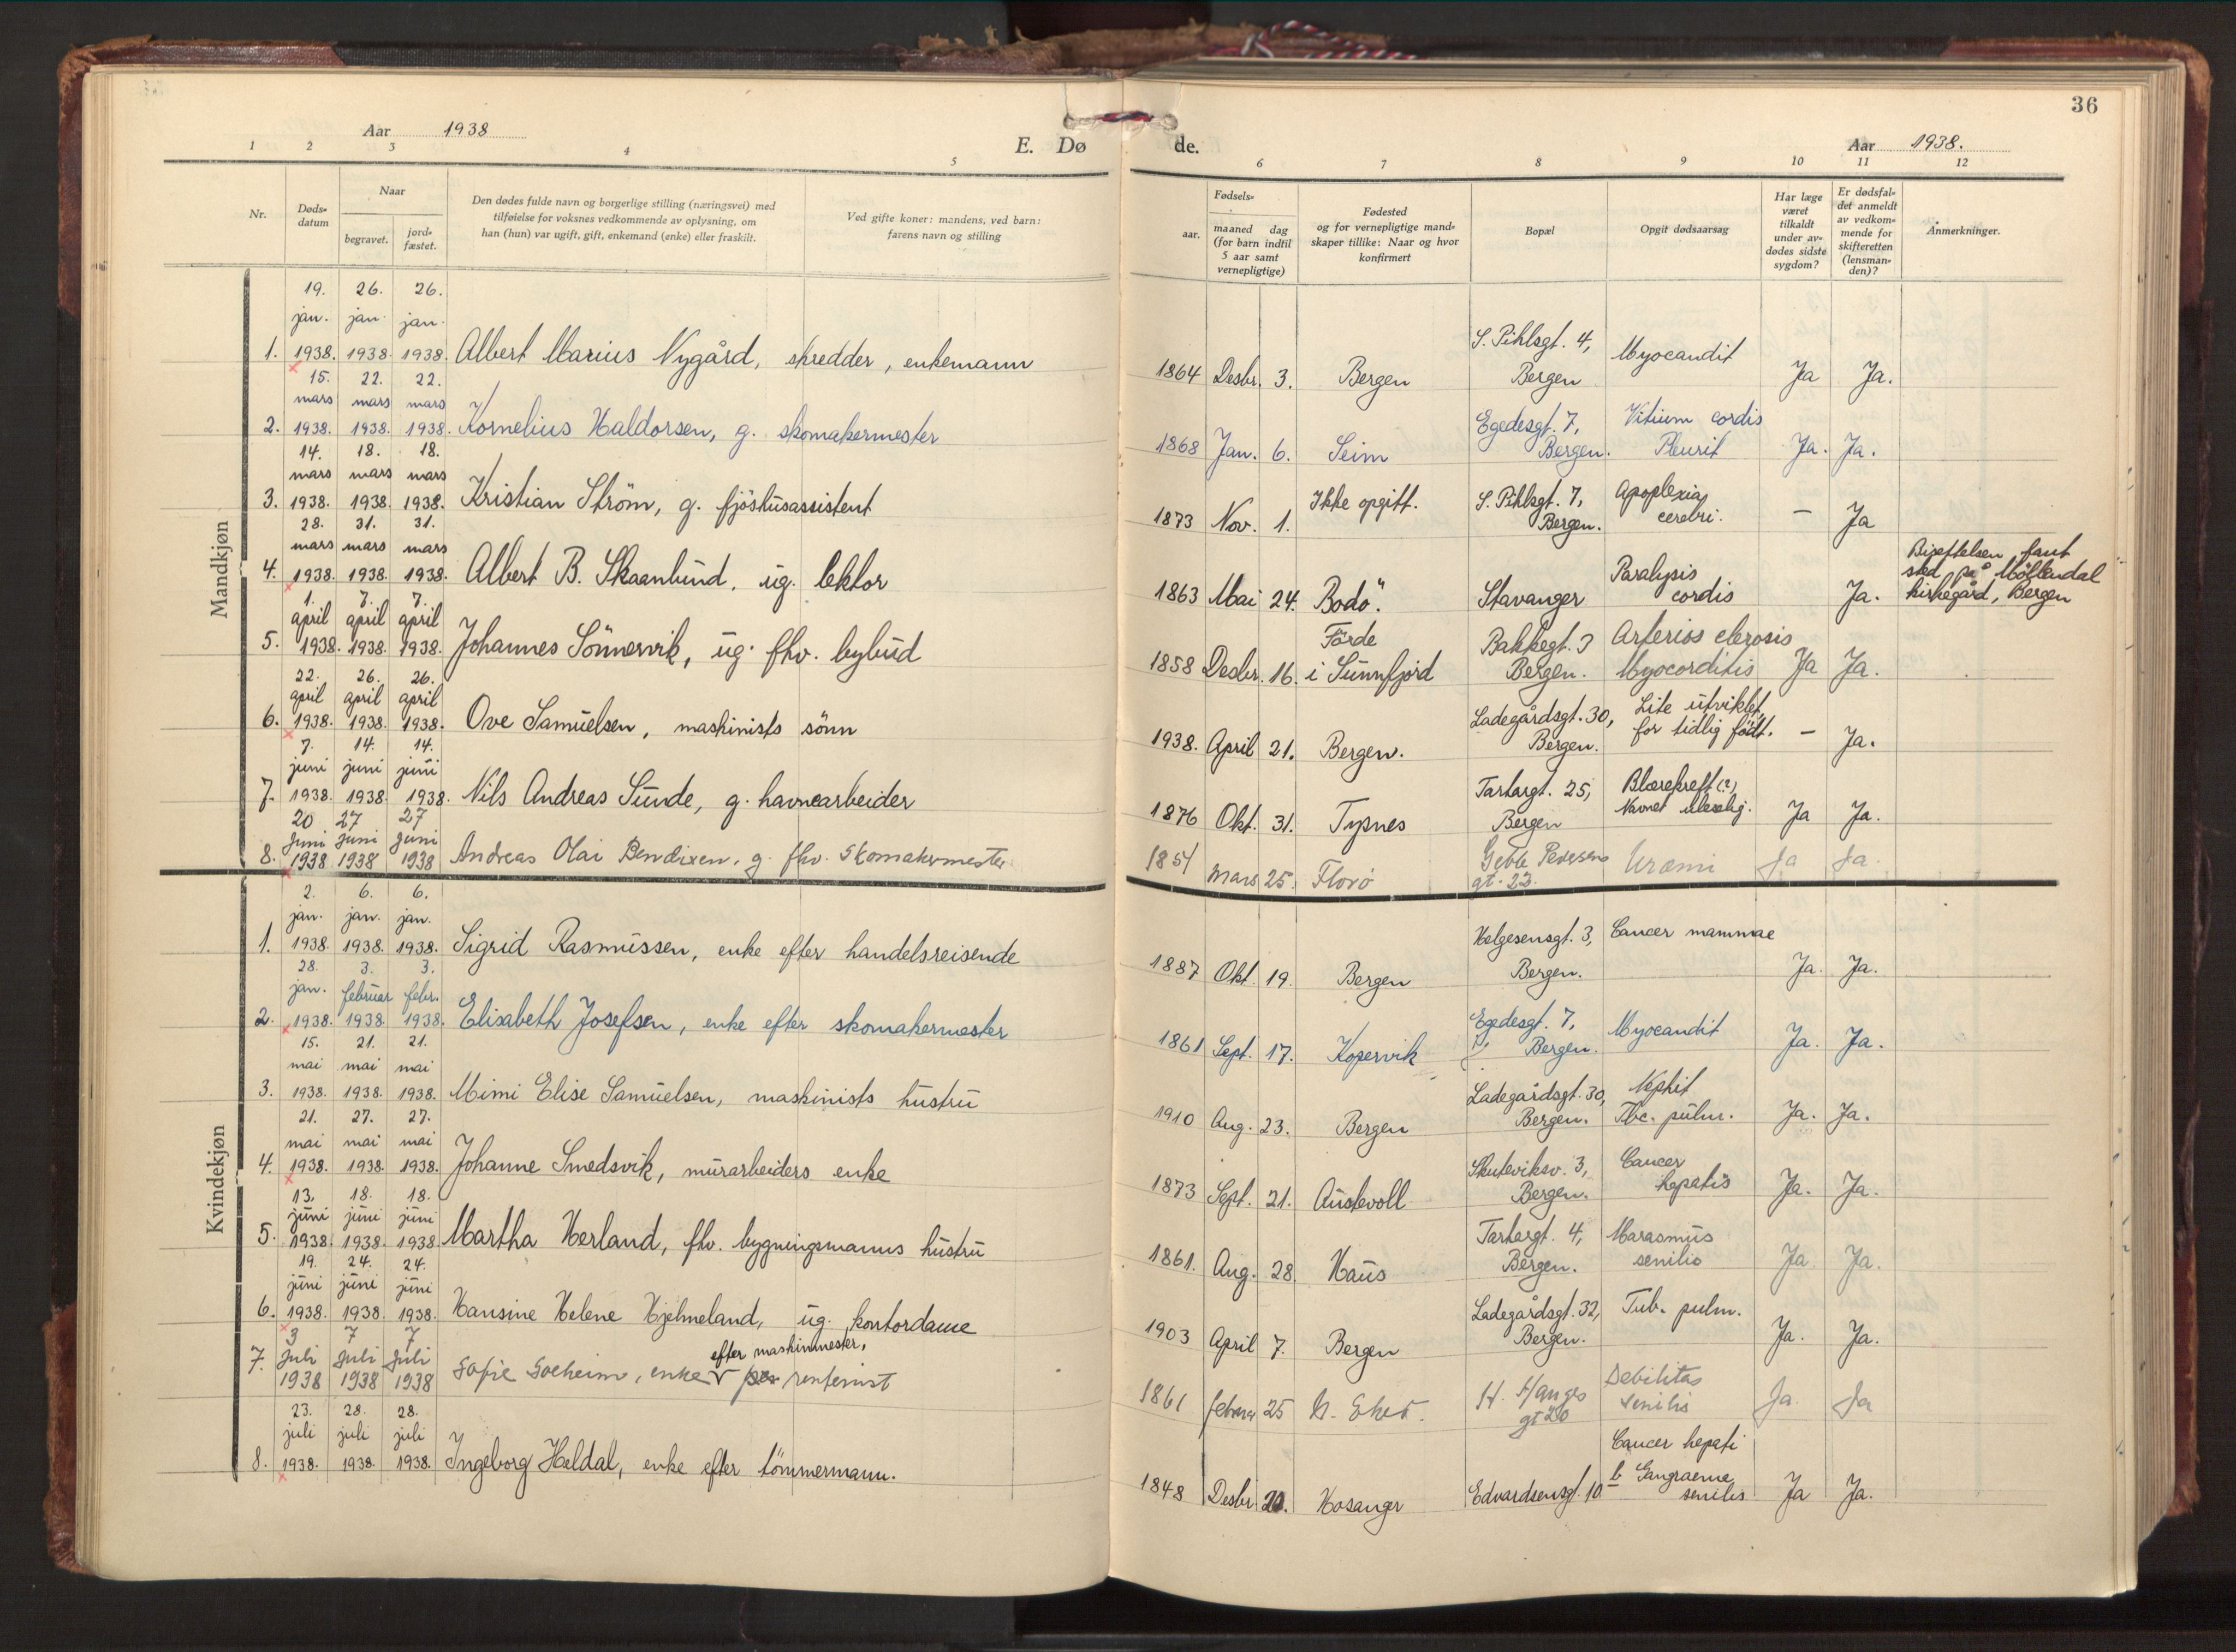 36
Aar 1938
E. Dø de.
Aar 1938.
1 2 3 4 5 6 7 8 9 10 11 12
Nr.
Døds-
datum
Naar
begravet.
jord-
fæstet.
Den dødes fulde navn og borgerlige stilling (næringsvei) med
tilføielse for voksnes vedkommende av oplysning, om
han (hun) var ugift, gift, enkemand (enke) eller fraskilt.
Ved gifte koner: mandens, ved barn:
farens navn og stilling
Fødsels-
aar.
maaned dag
(for barn indtil
5 aar samt
vernepligtige)
Fødested
og for vernepligtige mand-
skaper tillike: Naar og hvor
konfirmert
Bopæl
Opgit dødsaarsag
Har læge
været
tilkaldt
under av-
dødes sidste
sygdom?
Er dødsfal-
det anmeldt
av vedkom-
mende for
skifteretten
(lensman-
den)?
Anmerkninger.
Mandkjøn
19. 26. 26.
jan. jan. jan.
1. 1938. 1938. 1938. Albert Marius Nygård, skredder, enkemann
1864 Desbr. 3. Bergen
S. Pihlsgt. 4,
Bergen
Myocardit
Ja Ja.
15. 22. 22.
mars mars mars
2. 1938. 1938. 1938. Kornelius Haldorsen, g. skomakermester
1868 Jan. 6. Seim
Egedesgt. 7,
Bergen.
Vitium cordis
Pleurit
Ja. Ja.
14. 18. 18.
mars mars mars
3. 1938. 1938. 1938. Kristian Ström, g. fjöshusassistent
1873 Nov. 1. Ikke opgitt.
S. Pihlsgt. 7,
Bergen.
Apoplexia
cerebri.
— Ja
28. 31. 31.
mars mars mars
4. 1938. 1938. 1938. Albert B. Skaanlund. ug. lektor
1863 Mai 24. Bodö.
Stavanger
Paralysis
cordis
Ja.
Bisettelsen fant
sted på Möllendal
kirkegård, Bergen
1. 7. 7.
april april april
5. 1938. 1938. 1938. Johannes Sönnesvik, ug. fhv. bybud
1858 Desbr. 16.
Förde
i Sunnfjord
Bakkegt. 3
Bergen.
Arterios clerosis
Myocorditis
Ja Ja.
22. 26. 26.
april april april
6. 1938. 1938. 1938. Ove Samuelsen, maskinists sönn
1938. April 21. Bergen.
Ladegårdsgt. 30,
Bergen.
Lite utviklet,
for tidlig födt.
— Ja.
7. 14. 14.
juni juni juni
7. 1938. 1938. 1938. Nils Andreas Sunde, g. havnearbeider
1876 Okt. 31. Tysnes
Tartargt. 25,
Bergen
Blærekreft (?),
Navnet uleselig.
Ja Ja.
20 27 27
Juni Juni Juni
8. 1938 1938 1938 Andreas Olai Bendixen, g. fhv. Skomakermester
1851 Mars 25. Florø
Geble Pedersens
gt. 23.
Uræmi
Ja Ja.
Kvindekjøn
2. 6. 6.
jan. jan. jan.
1. 1938. 1938. 1938. Sigrid Rasmussen, enke efter handelsreisende
1887 Okt. 19. Bergen
Helgesensgt. 3,
Bergen.
Cancer mammae
Ja. Ja.
28. 3. 3.
jan. februar febr.
2. 1938. 1938. 1938. Elisabeth Josefsen, enke efter skomakermester
1861 Sept. 17. Kopervik
Egedesgt. 7,
Bergen.
Myocardit
Ja. Ja.
15. 21. 21.
mai mai mai
3. 1938. 1938. 1938. Mimi Elise Samuelsen, maskinists hustru
1910 Aug. 23. Bergen
Ladegårdsgt. 30,
Bergen.
Nephit
Tbc. pulm.
Ja. Ja.
21. 27. 27.
mai mai mai
4. 1938. 1938. 1938. Johanne Smedsvik, murarbeiders enke
1873 Sept. 21. Austevoll
Skuteviksv. 3,
Bergen.
Cancer
hepatis
Ja. Ja.
13. 18. 18.
juni juni juni
5. 1938. 1938. 1938. Martha Herland, fhv. bygningsmanns hustru
1861. Aug. 28. Haus
Tartargt. 4,
Bergen.
Marasmus
senilis
Ja Ja.
19. 24. 24.
juni juni juni
6. 1938. 1938. 1938. Hansine Helene Hjelmeland, ug. kontordame
1903 April 7. Bergen
Ladegårdsgt. 32,
Bergen.
Tub. pulm.
Ja. Ja.
3 7 7
efter maskinmester,
Juli Juli Juli
7. 1938 1938 1938 Sofie Solheim, enke rentenist
1861 februar 25
H. Hauges
gt 20
Debilitas
senilis
Ja. Ja
23. 28. 28.
juli juli juli
8. 1938. 1938. 1938. Ingeborg Heldal, enke efter tömmermann.
1848 Desbr. 20. Hosanger
Edvardsensgt. 10
Cancer hepati
Gangraene
senilis
Ja Ja.